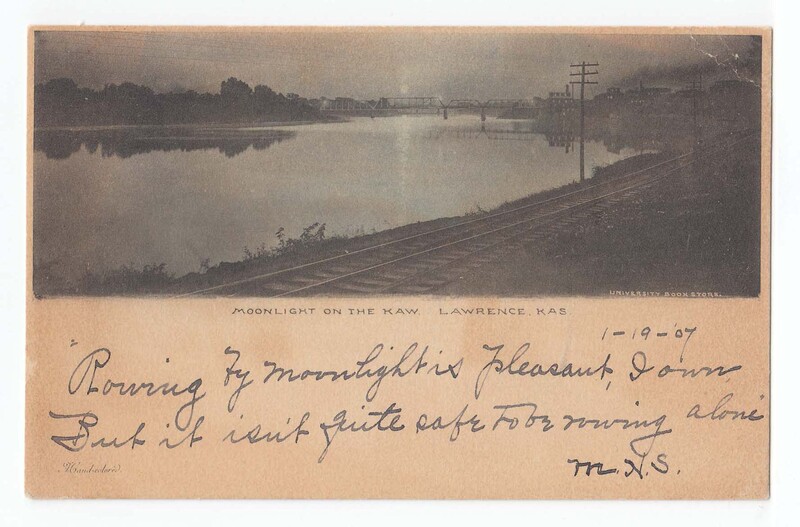 UNIVERSITY BOOK STORE.
MOONLIGHT ON THE KAW LAWRENCE, KAS.
1-19-'07
"Rowing by moonlight is pleasant, I own
But it isn't quite safe to be rowing alone
M.H.S.
Handcolored.